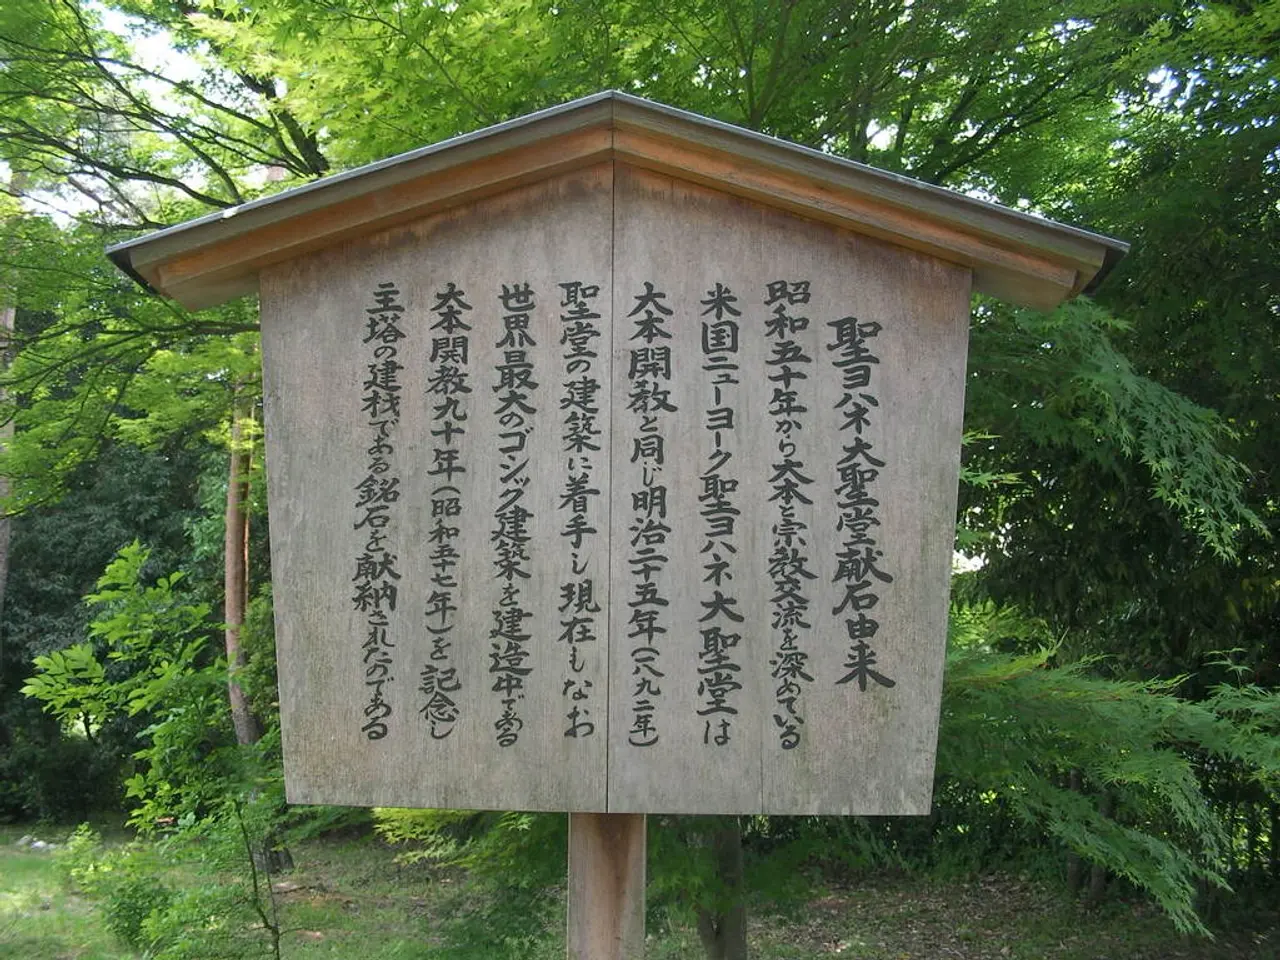 聖ヨハネ大聖堂献石由来
昭和五十年から大本と宗教交流を深めている
米国ニューヨーク聖ヨハネ大聖堂は
大本開教と同じ明治二十五年（一八九二年）
聖堂の建築に着手し現在もなお
世界最大のゴシック建築を建造中である
大本開教九十年（昭和五十七年）を記念し
主塔の建材である銘石を献納されたのである